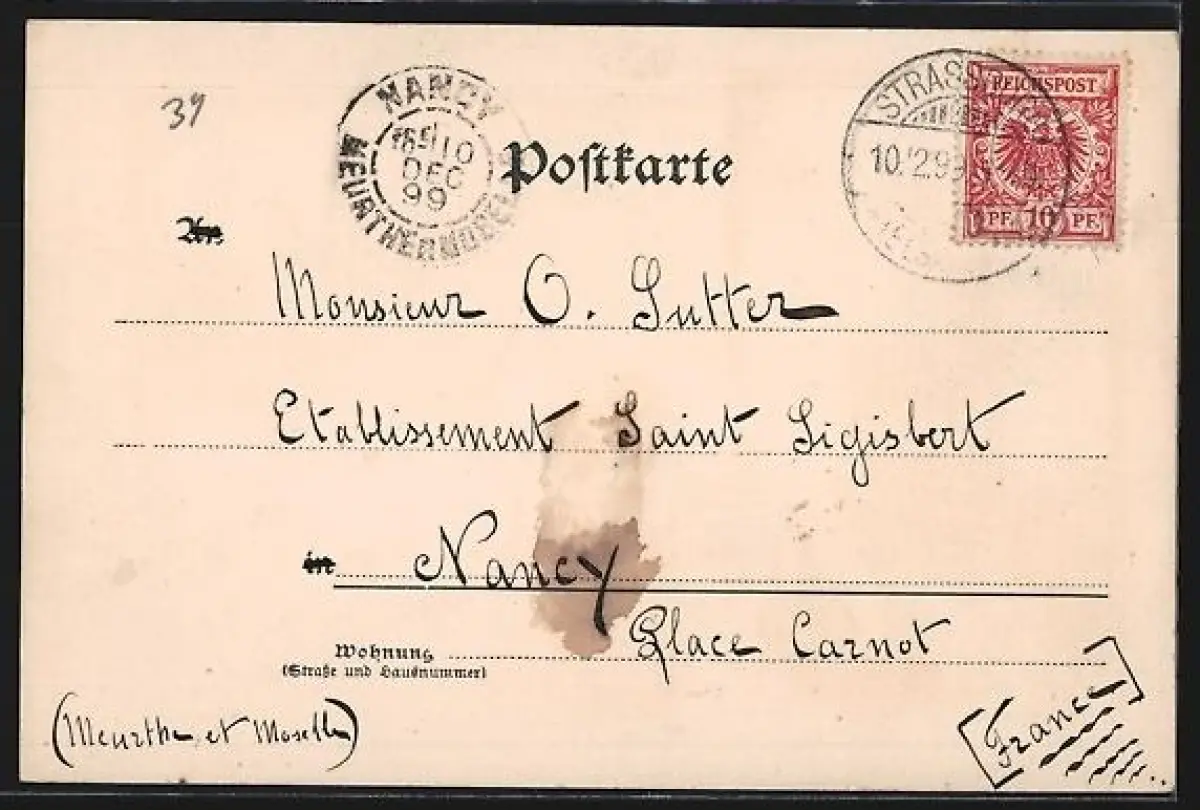 39
NANCY
10
DEC
99
MEURTHE
Postkarte
STRASS
10.12.99
REICHSPOST
PF. 10 PF.
An
Monsieur O. Sutter
Etablissement Saint Sigisbert
in Nancy
Place Carnot
Wohnung
(Straße und Hausnummer)
(Meurthe et Moselle)
[France]